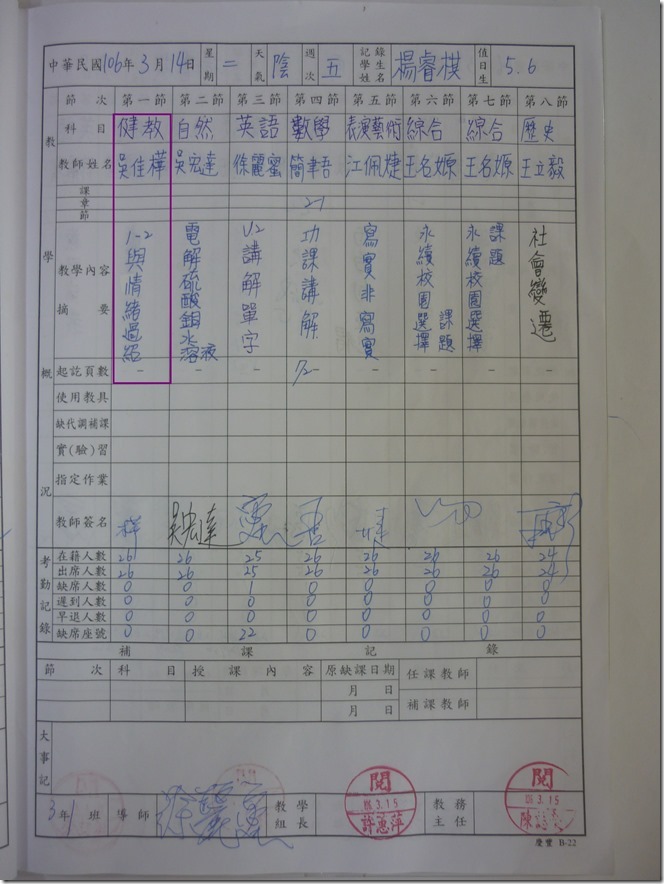 中華民國106年3月14日 星期 二 天氣 陰 週次 五 記錄學生姓名 楊睿模 值日生 5.6
節次 第一節 第二節 第三節 第四節 第五節 第六節 第七節 第八節
科目 健教 自然 英語 數學 表演藝術 綜合 綜合 歷史
教師姓名 吳佳樺 吳宏達 徐麗蜜 簡聿吾 江佩婕 王名嫄 王名嫄 王立毅
課章節 2-1
教學概況
教學內容摘要 1-2與情緒過招 電解硫酸銅水溶液 U2講解單字 功課講解 寫實非寫實 永續校園選擇課題 永續校園選擇課題 社會變遷
起訖頁數 - - - 72- - - - -
使用教具
缺代調補課
實(驗)習
指定作業
教師簽名 吳宏達
考勤記錄
在籍人數 26 26 25 26 26 26 26 24
出席人數 26 26 25 26 26 26 26 24
缺席人數 0 0 1 0 0 0 0 0
遲到人數 0 0 0 0 0 0 0 0
早退人數 0 0 0 0 0 0 0 0
缺席座號 0 0 22 0 0 0 0 0
補課記錄
節次 科目 授課內容 原缺課日期 任課教師
月 日
月 日 補課教師
大事記
3年1班 導師 教學組長 閱 106.3.15 許惠萍 教務主任 閱 106.3.15 陳
慶豐 B-22